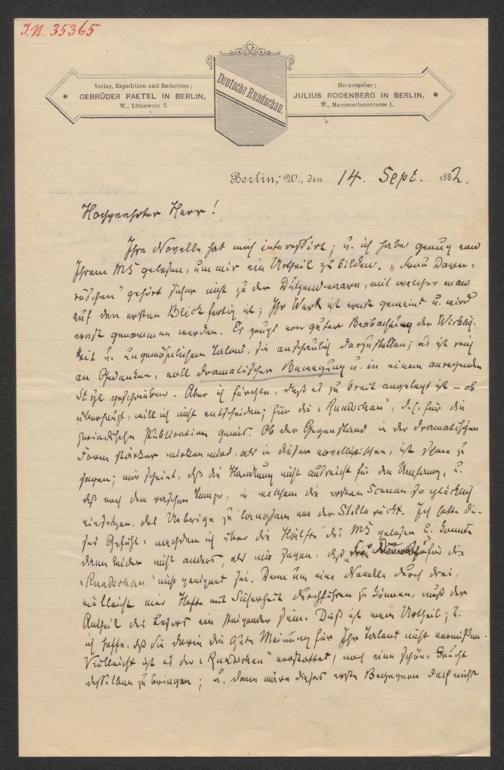 I.N. 35365
Verlag, Expedition und Redaction:
GEBRÜDER PAETEL IN BERLIN,
W., Lützowstr. 7.
Deutsche Rundschau.
Herausgeber:
JULIUS RODENBERG IN BERLIN,
W., Margarethenstrasse 1.
Berlin, W., den 14. Sept. 1882.
Hochgeehrter Herr!
Ihre Novelle hat mich interessirt; u. ich habe genug von
Ihrem MS gelesen, um mir ein Urtheil zu bilden. „Frau
gehört sicher nicht zu der Dutzendwaare, mit welcher man
auf den ersten Blick fertig ist; Ihr Werk ist ernst gemeint u. wird
ernst genommen werden. Es zeugt von guter Beobachtung der Wirklich-
keit u. ungewöhnlichem Talent, sie anschaulich darzustellen; es ist reich
an Gedanken, voll dramatischer Bewegung u. in einem anregenden
Styl geschrieben. Aber ich fürchte, daß es zu breit angelegt ist – ob
überhaupt, will ich nicht entscheiden; für die „Rundschau", d.h. für die
periodische Publication gewiß. Ob der Gegenstand in der dramatischen
Form stärker wirken wird, als in dieser novellistischen, ist schwer zu
sagen; mir scheint, daß die Handlung nicht ausreicht für den Umfang, u.
daß nach dem raschen Tempo, in welchem die ersten Scenen so glücklich
einsetzen, das Uebrige zu langsam von der Stelle rückt. Ich hatte die-
ses Gefühl, nachdem ich über die Hälfte des MS gelesen u. konnte
dann leider nicht anders, als mir sagen, daß für die
„Rundschau" nicht geeignet sei. Denn um eine Novelle durch drei,
vielleicht vier Hefte mit Sicherheit durchführen zu können, muß der
Antheil des Lesers ein steigender sein. Dieß ist mein Urtheil;
ich hoffe, daß Sie darin die gute Meinung für Ihr Talent nicht vermissen.
Vielleicht ist es der „Rundschau" verstattet, noch eine schöne Frucht
desselben zu bringen; u. dann wäre dieses erste Begegnen doch nicht